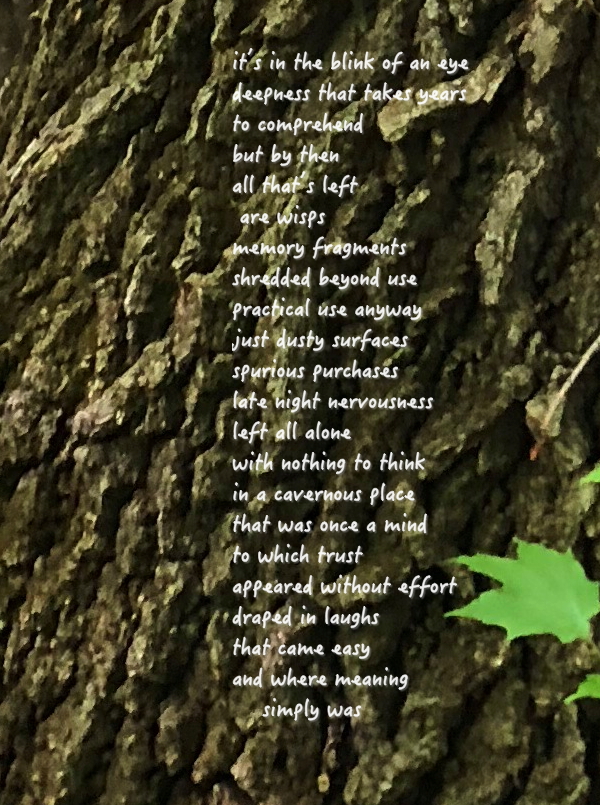 it's in the blink of an eye
deepness that takes years
to comprehend
but by then
all that's left
are wisps
memory fragments
shredded beyond use
practical use anyway
just dusty surfaces
spurious purchases
late night nervousness
left all alone
with nothing to think
in a cavernous place
that was once a mind
to which trust
appeared without effort
draped in laughs
that came easy
and where meaning
simply was